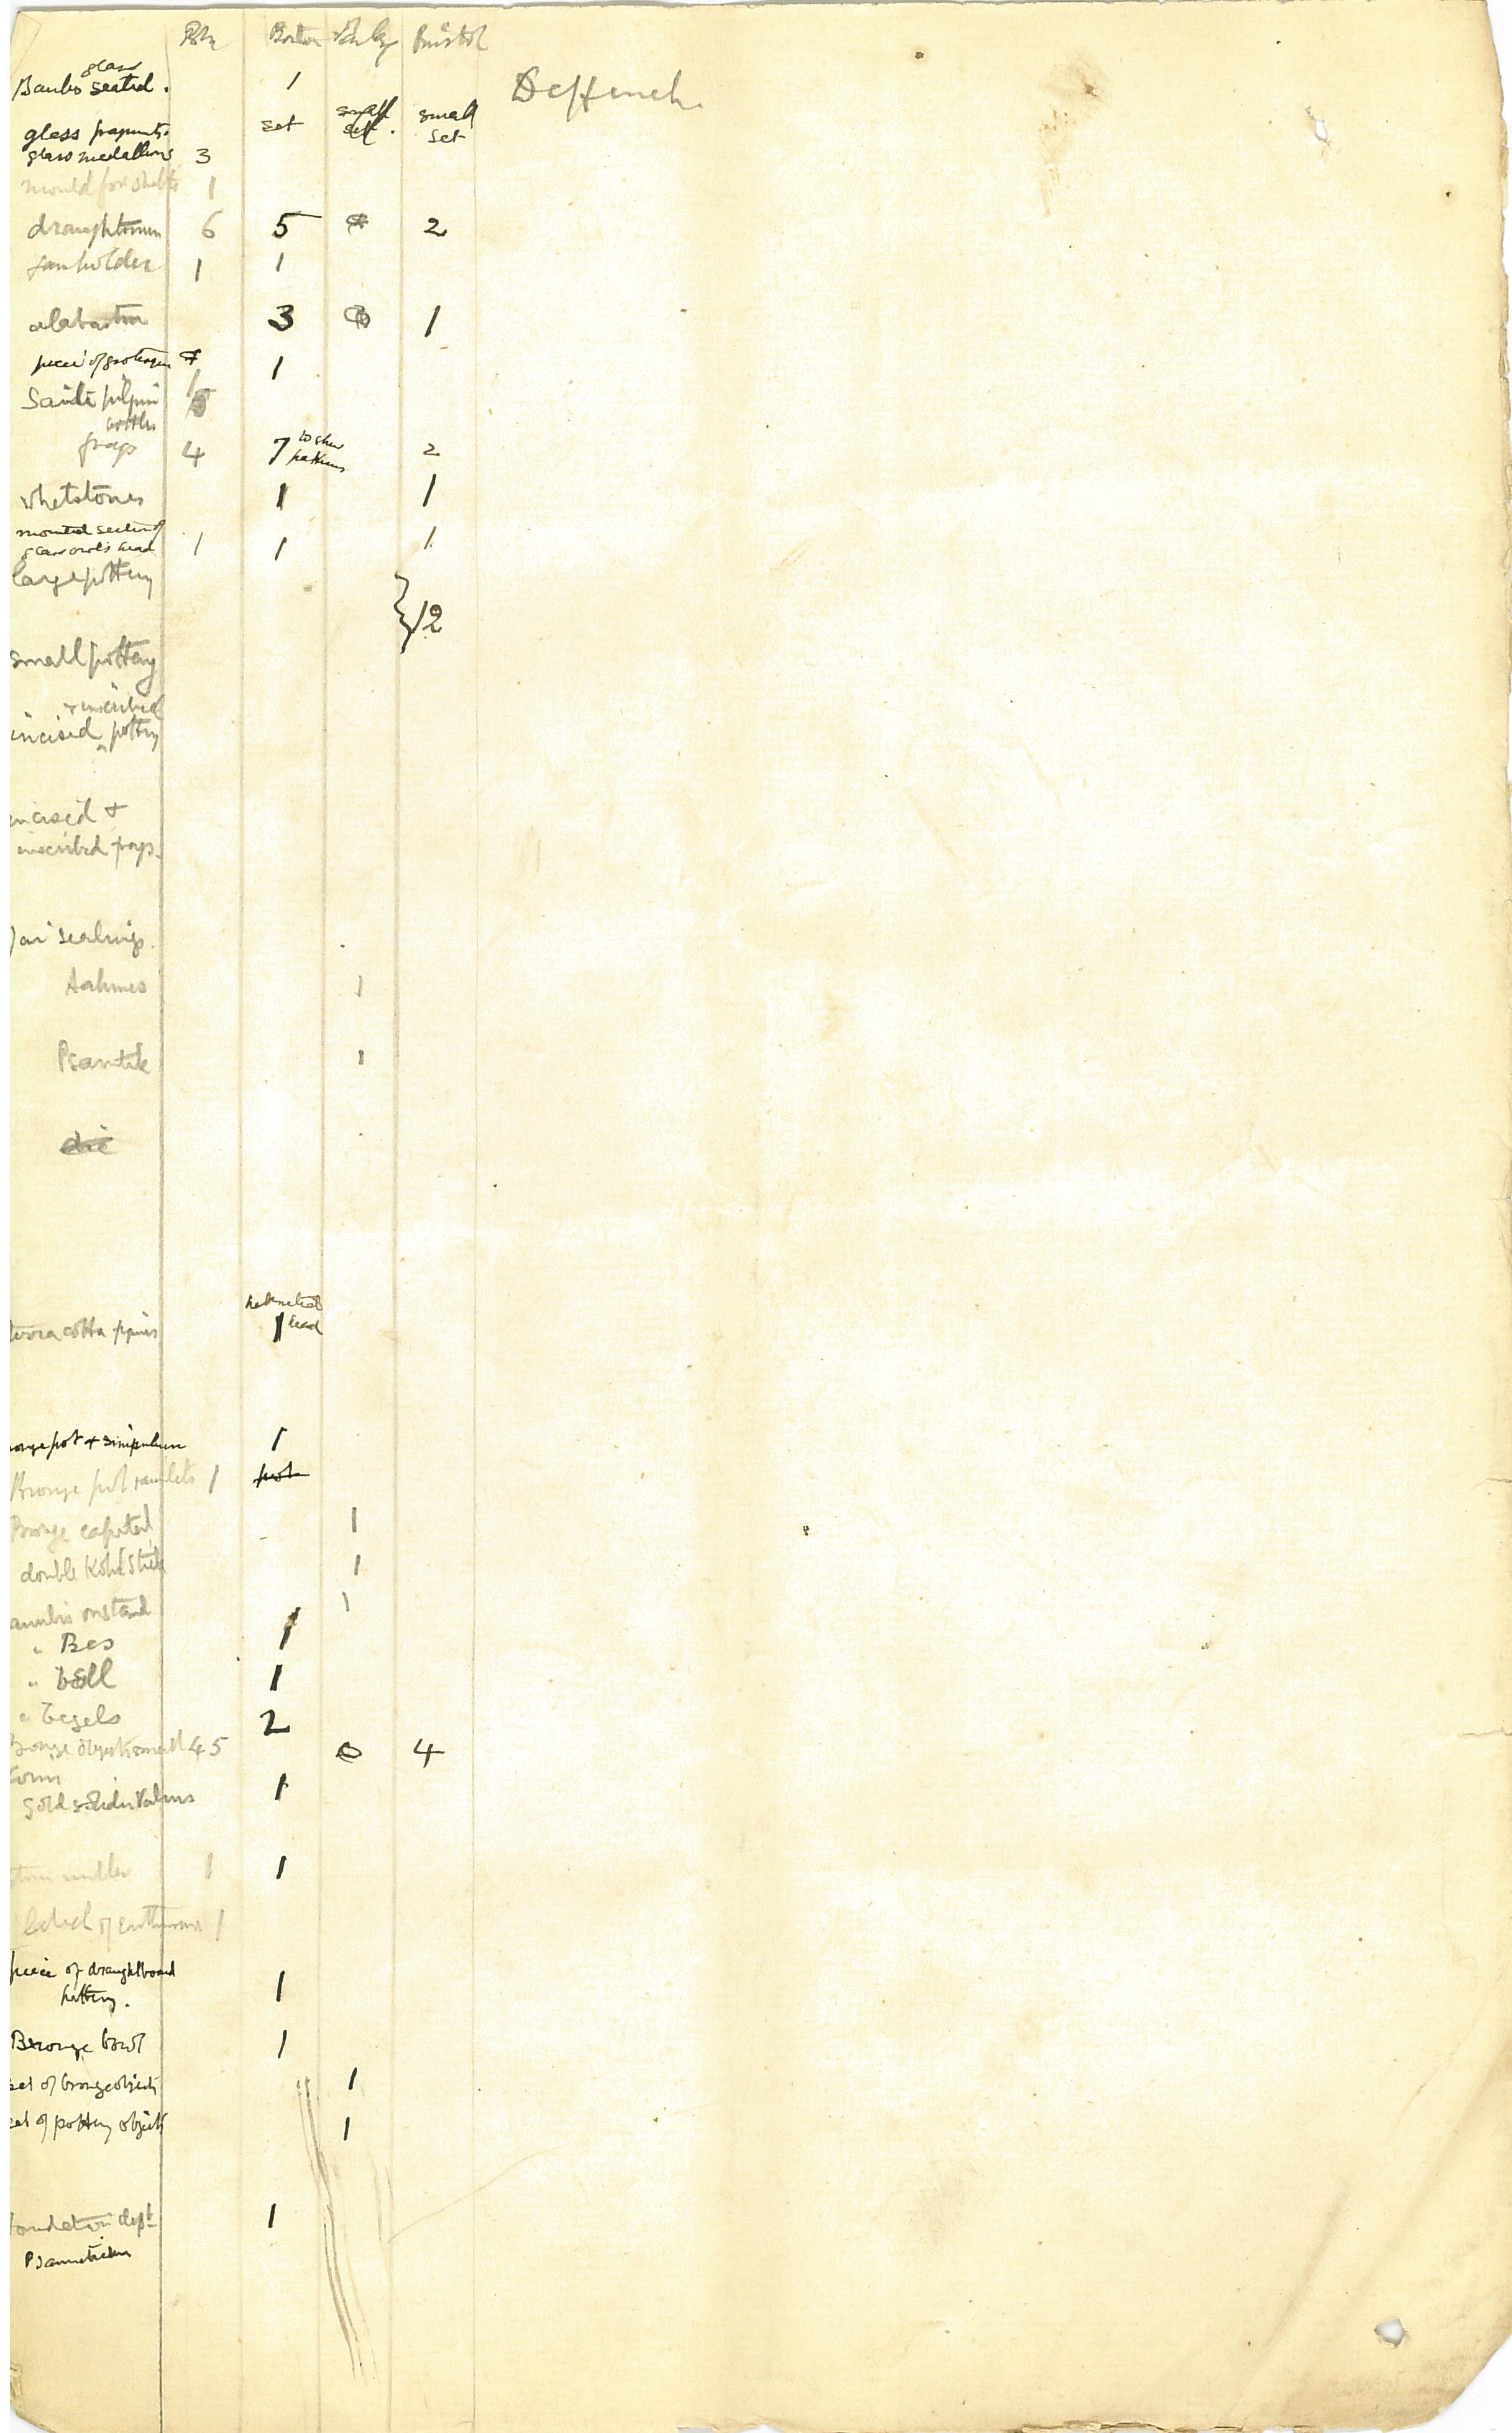 Boston Bristol
glass
Baubo seated. 1 Deffeneh.
glass fragments set small set. small set
glass medallions 3
mould for 1
draughtsmen 6 5 2
fan holder 1 1
alabastra 3 1
piece of 1
Saite pilgrim
bottles
frags 4 7 to shew patterns 2
whetstones 1 1
mounted section of
glass owl's head 1 1 1
large pottery
} 12
small pottery
& inscribed
incised ^ pottery
incised &
inscribed frags.
Jar sealings.
Aahmes 1
Psamtik 1
terracotta 1 head
pot & simpulum 1
Bronze pot 1 pot
Bronze capital 1
double Kohl Stick 1
anubis on stand 1
" Bes 1
" bell 1
" 2
Bronze objects small 45 4
Coin
gold 1
1 1
of 1
piece of draughtboard
pottery. 1
Bronze bowl 1
set of bronze objects 1
set of pottery objects 1
foundation dept 1
Psammetichus